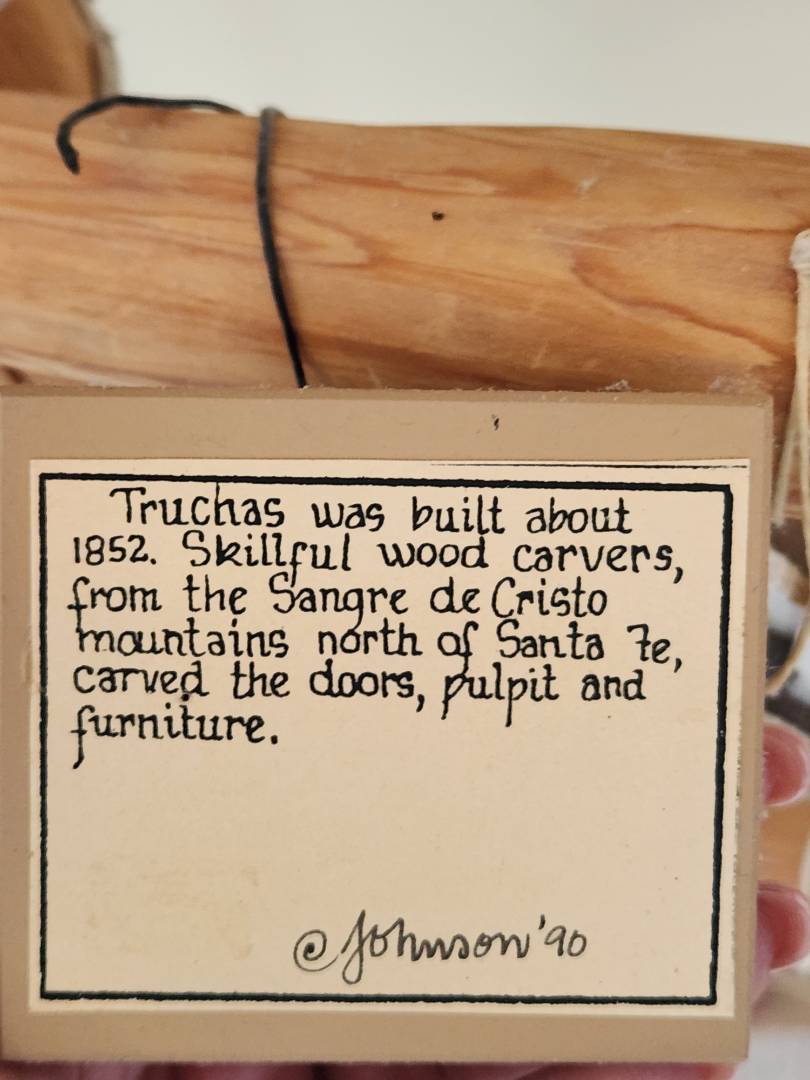 Truchas was built about
1852. Skillful wood carvers,
from the Sangre de Cristo
mountains north of Santa Fe,
carved the doors, pulpit and
furniture.
© Johnson '90